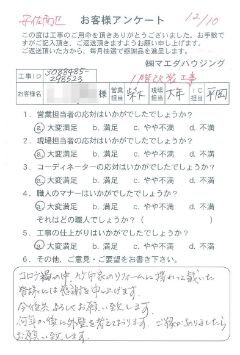 安佐南区 お客様アンケート 12/10
この度は工事のご用命を頂きありがとうございました。お手数で
すがご記入頂き、ご返送頂きますようお願い申し上げます。
ご返送頂いた方から、毎月抽選で感謝品を進呈します。
㈱マエダハウジング
工事ID 3088985-298523 1階改装工事
お客様名 様 営業担当 現場担当 IC担当 平岡
1. 営業担当者の応対はいかがでしたでしょうか?
ⓐ大変満足 b. 満足 c. やや不満 d. 不満
2. 現場担当者の応対はいかがでしたでしょうか?
ⓐ大変満足 b. 満足 c. やや不満 d. 不満
3. コーディネーターの応対はいかがでしたでしょうか?
ⓐ大変満足 b. 満足 c. やや不満 d. 不満
4. 職人のマナーはいかがでしたでしょうか?
ⓐ大変満足 b. 満足 c. やや不満 d. 不満
それはどの職人でしょうか? ( )
5. 工事の仕上がりはいかがでしたでしょうか?
ⓐ大変満足 b. 満足 c. やや不満 d. 不満
6. その他、ご意見・ご要望をお書き下さい。
コロナ禍の中 我が家のリフォームに携わって戴いた
皆様には感謝を申し上げます。
今後共よろしくお願い致します。
何年か後に外壁を考えております。ご縁がありましたら
お願い致します。